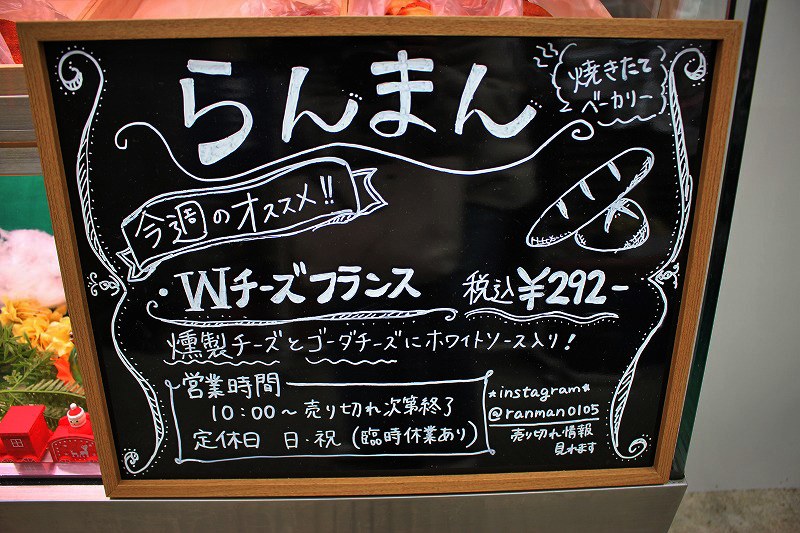 らんまん
焼きたて
ベーカリー
今週のオススメ!!
・Wチーズフランス 税込¥292-
燻製チーズとゴーダチーズにホワイトソース入り!
営業時間
10:00~売り切れ次第終了
定休日 日・祝(臨時休業あり)
*instagram*
@ranman0105
売り切れ情報
見れます